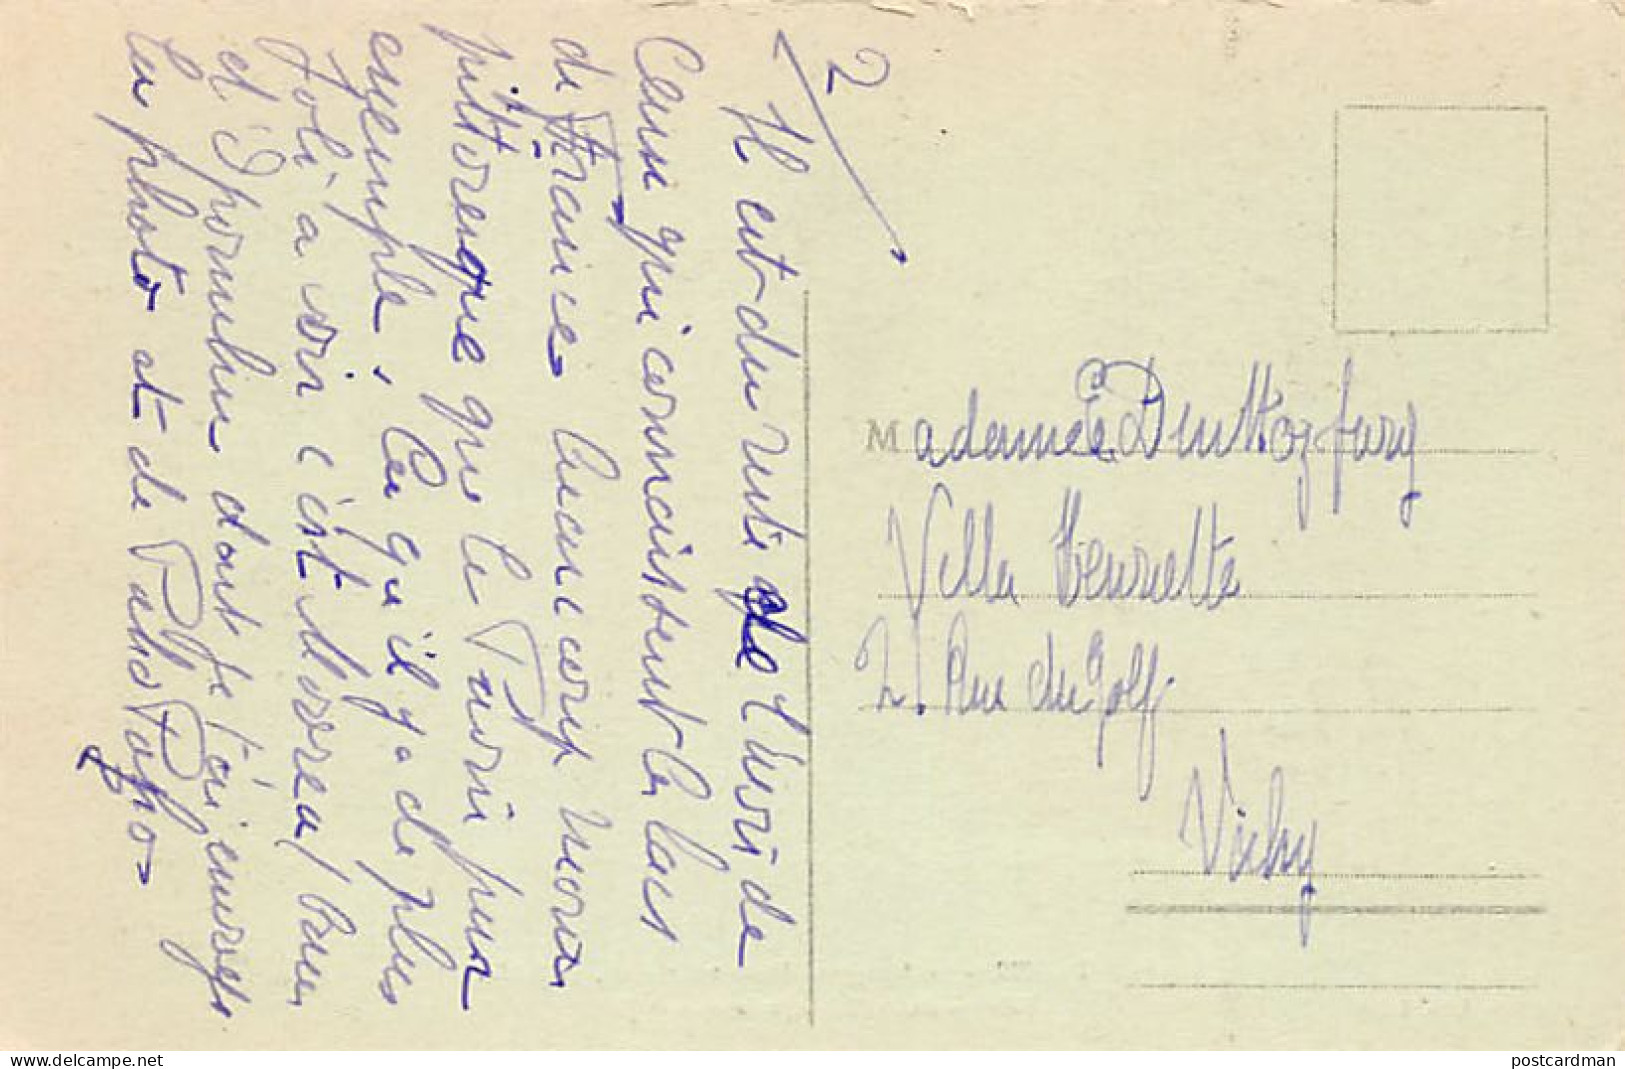 2
Il est du reste de l'avis de
Ceux qui connaissent les lacs
de France beaucoup moins
pittoresque que le Turini par
exemple, Ce qu'il y a de plus
Joli a voir c'est Moreau
et dont je t'ai envoyé
les photo et de
Madame E.
Villa Henriette
2. Rue du Golf
Vichy
www.delcampe.net
postcardman